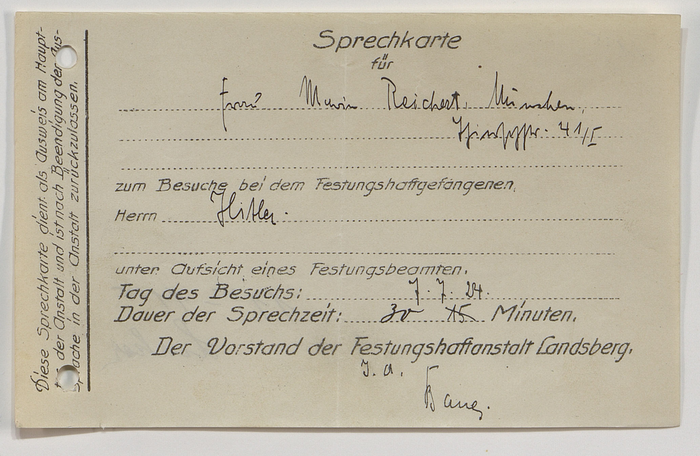 Sprechkarte
für
Frau Marie Reichert, München,
Thierschstr. 41/I
zum Besuche bei dem Festungshaftgefangenen,
Herrn Hitler.
unter Aufsicht eines Festungsbeamten.
Tag des Besuchs: 7. 7. 24.
Dauer der Sprechzeit: 30 15 Minuten.
Der Vorstand der Festungshaftanstalt Landsberg.
I. A.
Diese Sprechkarte dient als Ausweis am Haupt-
der Anstalt und ist nach Beendigung der Aus-
sprache in der Anstalt zurückzulassen.